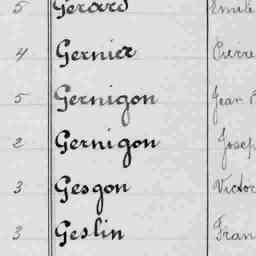 5 Gérard Emile
4 Gernier Pierre
5 Gernigon Jean
2 Gernigon Josep
3 Gesgon Victor
3 Geslin Fran